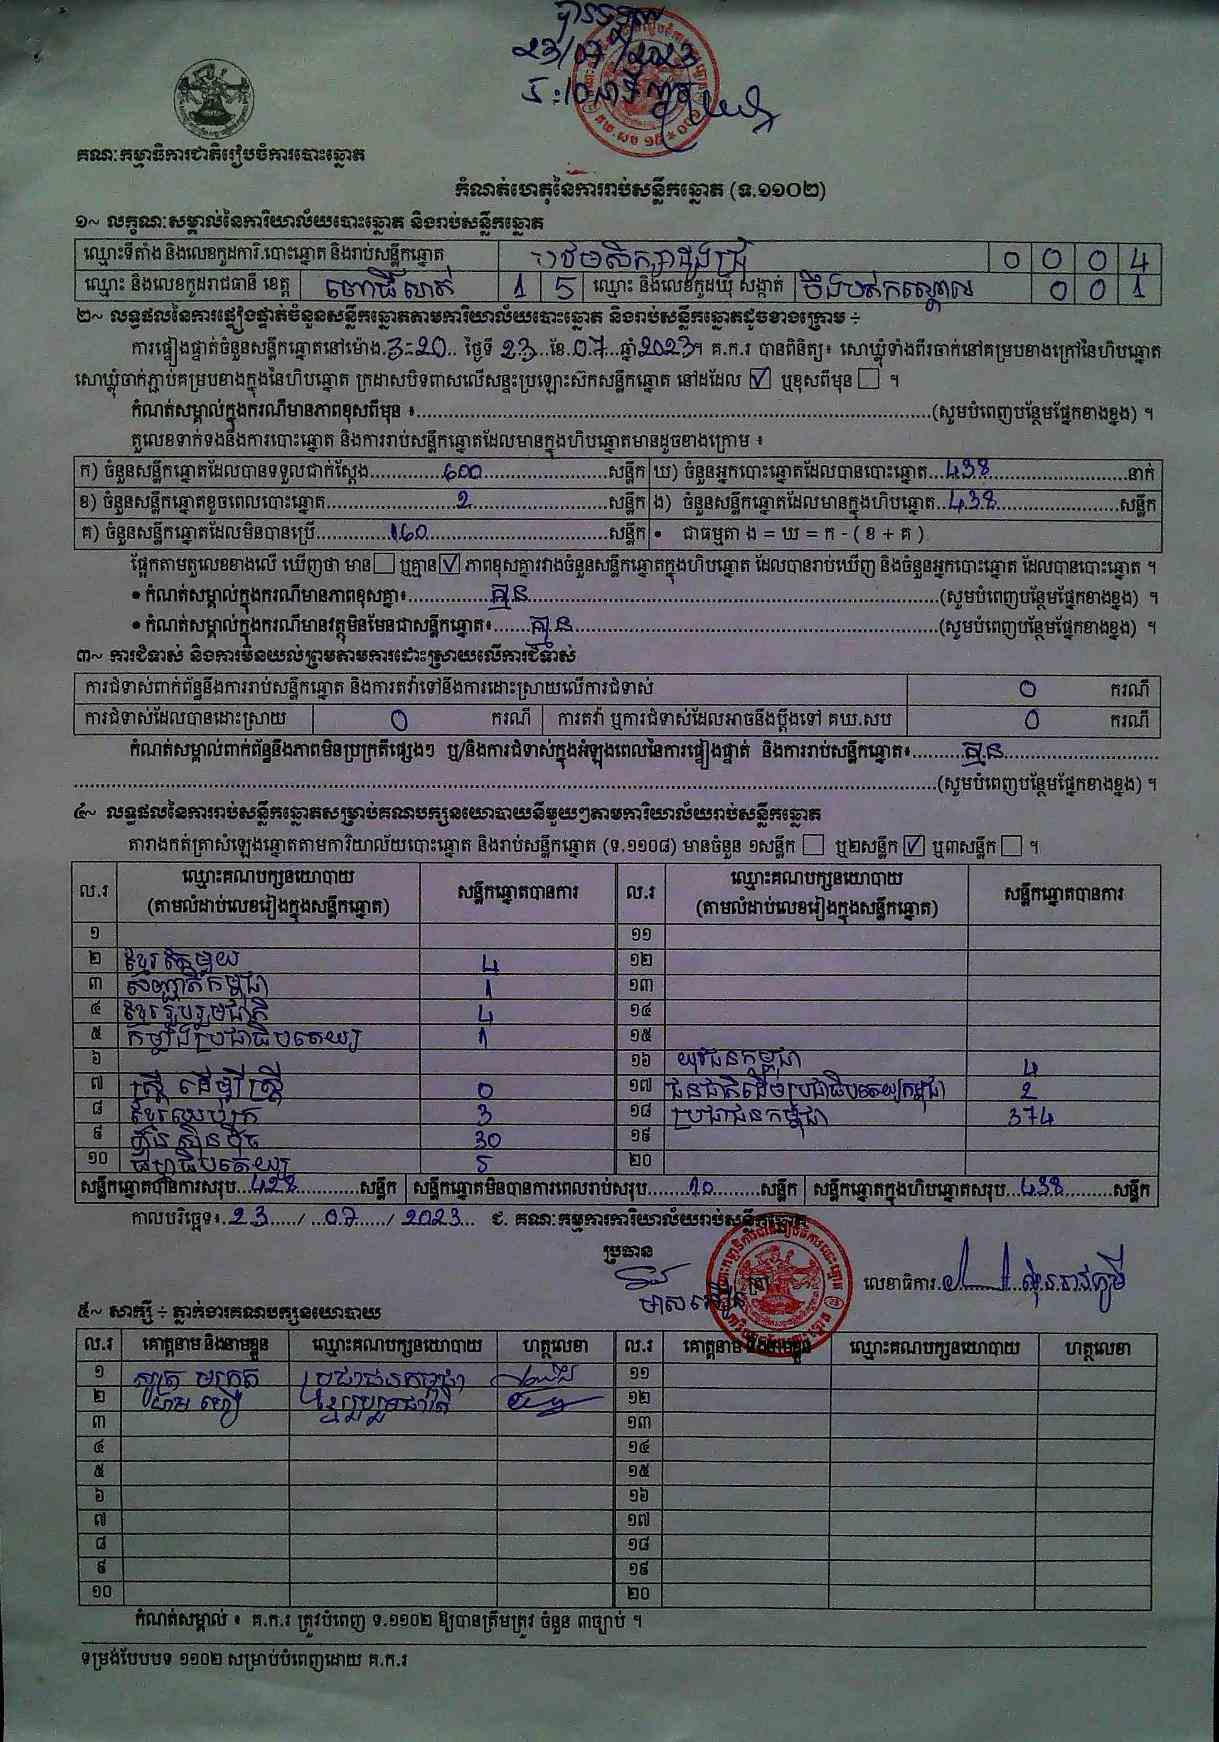 ២៣/០៧/២០២៣
គណៈកម្មាធិការជាតិរៀបចំការបោះឆ្នោត
កំណត់ហេតុនៃការរាប់សន្លឹកឆ្នោត (ទ.១១០២)
១~ លក្ខណៈសម្គាល់នៃការិយាល័យបោះឆ្នោត និងរាប់សន្លឹកឆ្នោត
ឈ្មោះទីតាំង និងលេខកូដការិ.បោះឆ្នោត និងរាប់សន្លឹកឆ្នោត 0 0 0 4
ឈ្មោះ និងលេខកូដរាជធានី ខេត្ត ពោធិ៍សាត់ 1 5 ឈ្មោះ និងលេខកូដឃុំ សង្កាត់ បឹងបត់កណ្ដោល 0 0 1
២~ លទ្ធផលនៃការផ្ទៀងផ្ទាត់ចំនួនសន្លឹកឆ្នោតតាមការិយាល័យបោះឆ្នោត និងរាប់សន្លឹកឆ្នោតដូចខាងក្រោម ÷
ការផ្ទៀងផ្ទាត់ចំនួនសន្លឹកឆ្នោតនៅម៉ោង.3-20.. ថ្ងៃទី 23...ខែ.07...ឆ្នាំ2023។ គ.ក.រ បានពិនិត្យ៖ សោឃ្លុំទាំងពីរចាក់នៅគម្របខាងក្រៅនៃហិបឆ្នោត
សោឃ្លុំចាក់ភ្ជាប់គម្របខាងក្នុងនៃហិបឆ្នោត ក្រដាសបិទពាសលើសន្ទះប្រឡោះស៊កសន្លឹកឆ្នោត នៅដដែល ☑ ឬខុសពីមុន ☐ ។
កំណត់សម្គាល់ក្នុងករណីមានភាពខុសពីមុន ៖..........(សូមបំពេញបន្ថែមផ្នែកខាងខ្នង) ។
តួលេខទាក់ទងនឹងការបោះឆ្នោត និងការរាប់សន្លឹកឆ្នោតដែលមានក្នុងហិបឆ្នោតមានដូចខាងក្រោម ៖
ក) ចំនួនសន្លឹកឆ្នោតដែលបានទទួលជាក់ស្ដែង..........600..........សន្លឹក ឃ) ចំនួនអ្នកបោះឆ្នោតដែលបានបោះឆ្នោត...438..........នាក់
ខ) ចំនួនសន្លឹកឆ្នោតខូចពេលបោះឆ្នោត..........2..........សន្លឹក ង) ចំនួនសន្លឹកឆ្នោតដែលមានក្នុងហិបឆ្នោត..438..........សន្លឹក
គ) ចំនួនសន្លឹកឆ្នោតដែលមិនបានប្រើ..........160..........សន្លឹក • ជាធម្មតា ង = ឃ = ក - ( ខ + គ )
ផ្អែកតាមតួលេខខាងលើ ឃើញថា មាន ☐ ឬគ្មាន ☑ ភាពខុសគ្នារវាងចំនួនសន្លឹកឆ្នោតក្នុងហិបឆ្នោត ដែលបានរាប់ឃើញ និងចំនួនអ្នកបោះឆ្នោត ដែលបានបោះឆ្នោត ។
• កំណត់សម្គាល់ក្នុងករណីមានភាពខុសគ្នា៖..........គ្មាន..........(សូមបំពេញបន្ថែមផ្នែកខាងខ្នង) ។
• កំណត់សម្គាល់ក្នុងករណីមានវត្ថុមិនមែនជាសន្លឹកឆ្នោត៖.......គ្មាន..........(សូមបំពេញបន្ថែមផ្នែកខាងខ្នង) ។
៣~ ការជំទាស់ និងការមិនយល់ព្រមតាមការដោះស្រាយលើការជំទាស់
ការជំទាស់ពាក់ព័ន្ធនឹងការរាប់សន្លឹកឆ្នោត និងការតវ៉ាទៅនឹងការដោះស្រាយលើការជំទាស់ 0 ករណី
ការជំទាស់ដែលបានដោះស្រាយ 0 ករណី ការតវ៉ា ឬការជំទាស់ដែលអាចនឹងប្ដឹងទៅ គឃ.សប 0 ករណី
កំណត់សម្គាល់ពាក់ព័ន្ធនឹងភាពមិនប្រក្រតីផ្សេងៗ ឬ/និងការជំទាស់ក្នុងអំឡុងពេលនៃការផ្ទៀងផ្ទាត់ និងការរាប់សន្លឹកឆ្នោត៖..........គ្មាន..........
..........(សូមបំពេញបន្ថែមផ្នែកខាងខ្នង) ។
៤~ លទ្ធផលនៃការរាប់សន្លឹកឆ្នោតសម្រាប់គណបក្សនយោបាយនីមួយៗតាមការិយាល័យរាប់សន្លឹកឆ្នោត
តារាងកត់ត្រាសំឡេងឆ្នោតតាមការិយាល័យបោះឆ្នោត និងរាប់សន្លឹកឆ្នោត (ទ.១១០៨) មានចំនួន ១សន្លឹក ☐ ឬ២សន្លឹក ☑ ឬ៣សន្លឹក ☐ ។
ល.រ ឈ្មោះគណបក្សនយោបាយ (តាមលំដាប់លេខរៀងក្នុងសន្លឹកឆ្នោត) សន្លឹកឆ្នោតបានការ ល.រ ឈ្មោះគណបក្សនយោបាយ (តាមលំដាប់លេខរៀងក្នុងសន្លឹកឆ្នោត) សន្លឹកឆ្នោតបានការ
១ ១១
២ ខ្មែរតែមួយ 4 ១២
៣ សញ្ជាតិកម្ពុជា 1 ១៣
៤ ខ្មែររួបរួមជាតិ 4 ១៤
៥ កម្លាំងប្រជាធិបតេយ្យ 1 ១៥
៦ ១៦ យុវជនកម្ពុជា 4
៧ ស្ត្រី ដើម្បីស្ត្រី 0 ១៧ ជនជាតិដើមប្រជាធិបតេយ្យកម្ពុជា 2
៨ ខ្មែរឈប់ក្រ 3 ១៨ ប្រជាជនកម្ពុជា 374
៩ ហ៊្វុនស៊ិនប៉ិច 30 ១៩
១០ ធម្មាធិបតេយ្យ 5 ២០
សន្លឹកឆ្នោតបានការសរុប...428..........សន្លឹក សន្លឹកឆ្នោតមិនបានការពេលរាប់សរុប.......10.........សន្លឹក សន្លឹកឆ្នោតក្នុងហិបឆ្នោតសរុប...438.........សន្លឹក
កាលបរិច្ឆេទ៖.23...../...07...../ 2023... ជ. គណៈកម្មការការិយាល័យរាប់សន្លឹកឆ្នោត
ប្រធាន
ត្រា
លេខាធិការ
៥~ សាក្សី ÷ ភ្នាក់ងារគណបក្សនយោបាយ
ល.រ គោត្តនាម និងនាមខ្លួន ឈ្មោះគណបក្សនយោបាយ ហត្ថលេខា ល.រ គោត្តនាម និងនាមខ្លួន ឈ្មោះគណបក្សនយោបាយ ហត្ថលេខា
១ ប្រជាជនកម្ពុជា ១១
២ ខ្មែររួបរួមជាតិ ១២
៣ ១៣
៤ ១៤
៥ ១៥
៦ ១៦
៧ ១៧
៨ ១៨
៩ ១៩
១០ ២០
កំណត់សម្គាល់ ៖ គ.ក.រ ត្រូវបំពេញ ទ.១១០២ ឱ្យបានត្រឹមត្រូវ ចំនួន ៣ច្បាប់ ។
ទម្រង់បែបបទ ១១០២ សម្រាប់បំពេញដោយ គ.ក.រ